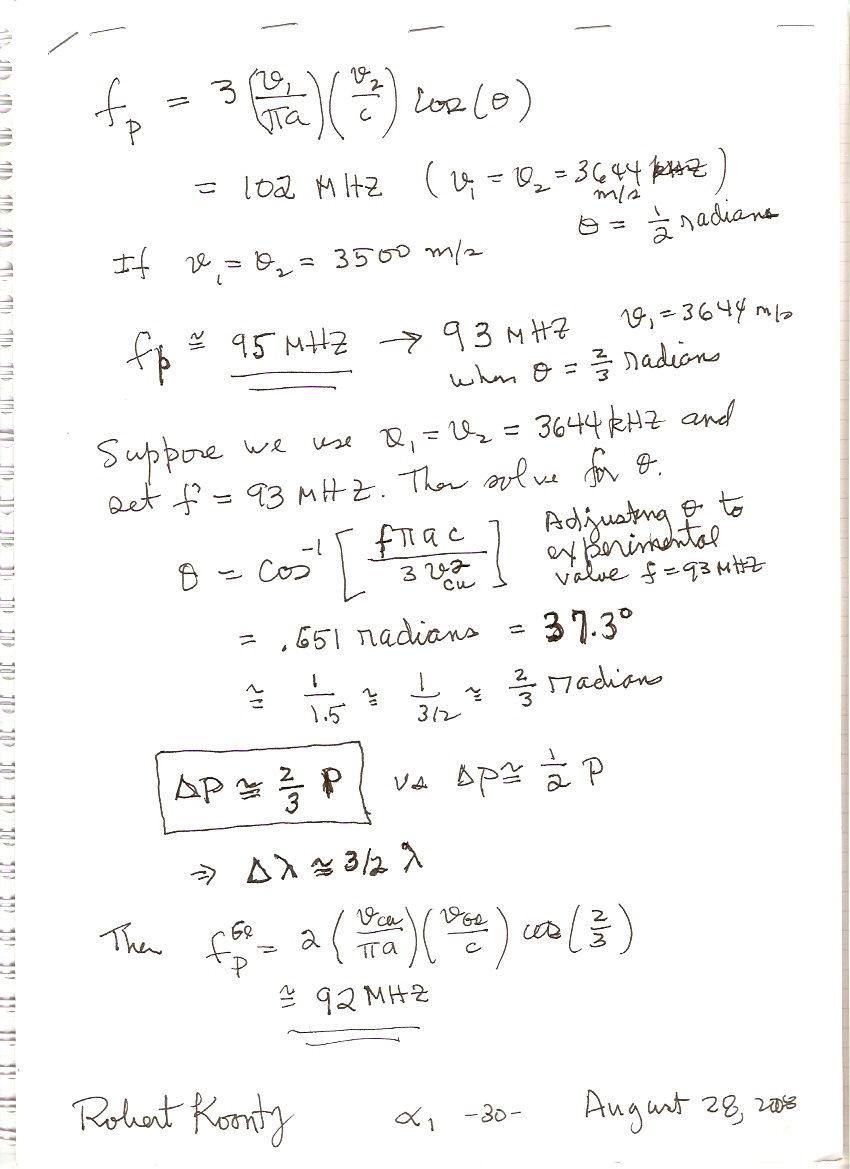 f_p = 3 (v₁/πa)(v₂/c) cos(θ)
= 102 MHZ (v₁ = v₂ = 3644 kHZ)
m/s
θ = 1/2 radians
If v₁ = v₂ = 3500 m/s
f_p ≅ 95 MHZ → 93 MHZ v₁ = 3644 m/s
when θ = 2/3 radians
Suppose we use v₁ = v₂ = 3644 kHZ and
set f = 93 MHZ. Then solve for θ.
θ = cos⁻¹ [fπac / 3v²_cu] Adjusting θ to
experimental
value f = 93 MHZ
= .651 radians = 37.3°
≅ 1/1.5 ≅ 1/3/2 ≅ 2/3 radians
ΔP ≅ 2/3 P vs ΔP ≅ 1/2 P
⇒ Δλ ≅ 3/2 λ
Then f_p^Ge = 2 (v_cu/πa)(v_Ge/c) cos(2/3)
≅ 92 MHZ
Robert Koontz α₁ -30- August 28, 2008